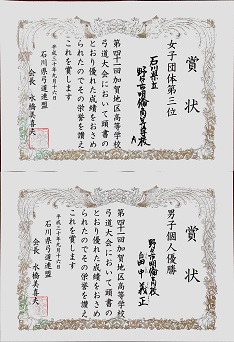 賞状
女子団体第三位
石川県立
野々市明倫高等学校
A
第四十一回加賀地区高等学校
弓道大会において頭書の
とおり優れた成績をおさめ
られたのでその栄誉を讃え
これを賞します
平成三十年九月十六日
石川県弓道連盟
会長 水橋美喜夫
賞状
男子個人優勝
野々市明倫高校
畠中義正
第四十一回加賀地区高等学校
弓道大会において頭書の
とおり優れた成績をおさめ
られたのでその栄誉を讃え
これを賞します
平成三十年九月十六日
石川県弓道連盟
会長 水橋美喜夫